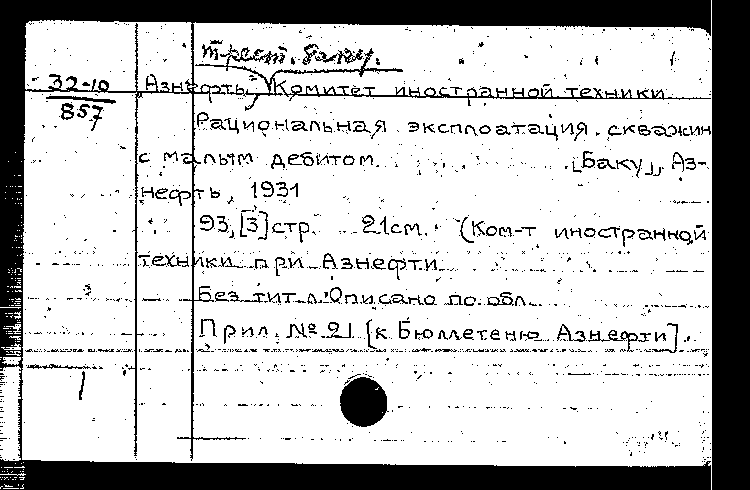 трест. Баку.
32-10 Азнефть, Комитет иностранной техники
857
Рациональная эксплоатация скважин
с малым дебитом [Баку], Аз-
нефть, 1931
93,[3]стр. 21см. (Ком-т иностранной
техники при Азнефти
Без тит л. Описано по обл.
Прил. № 21 [к Бюллетеню Азнефти].
1